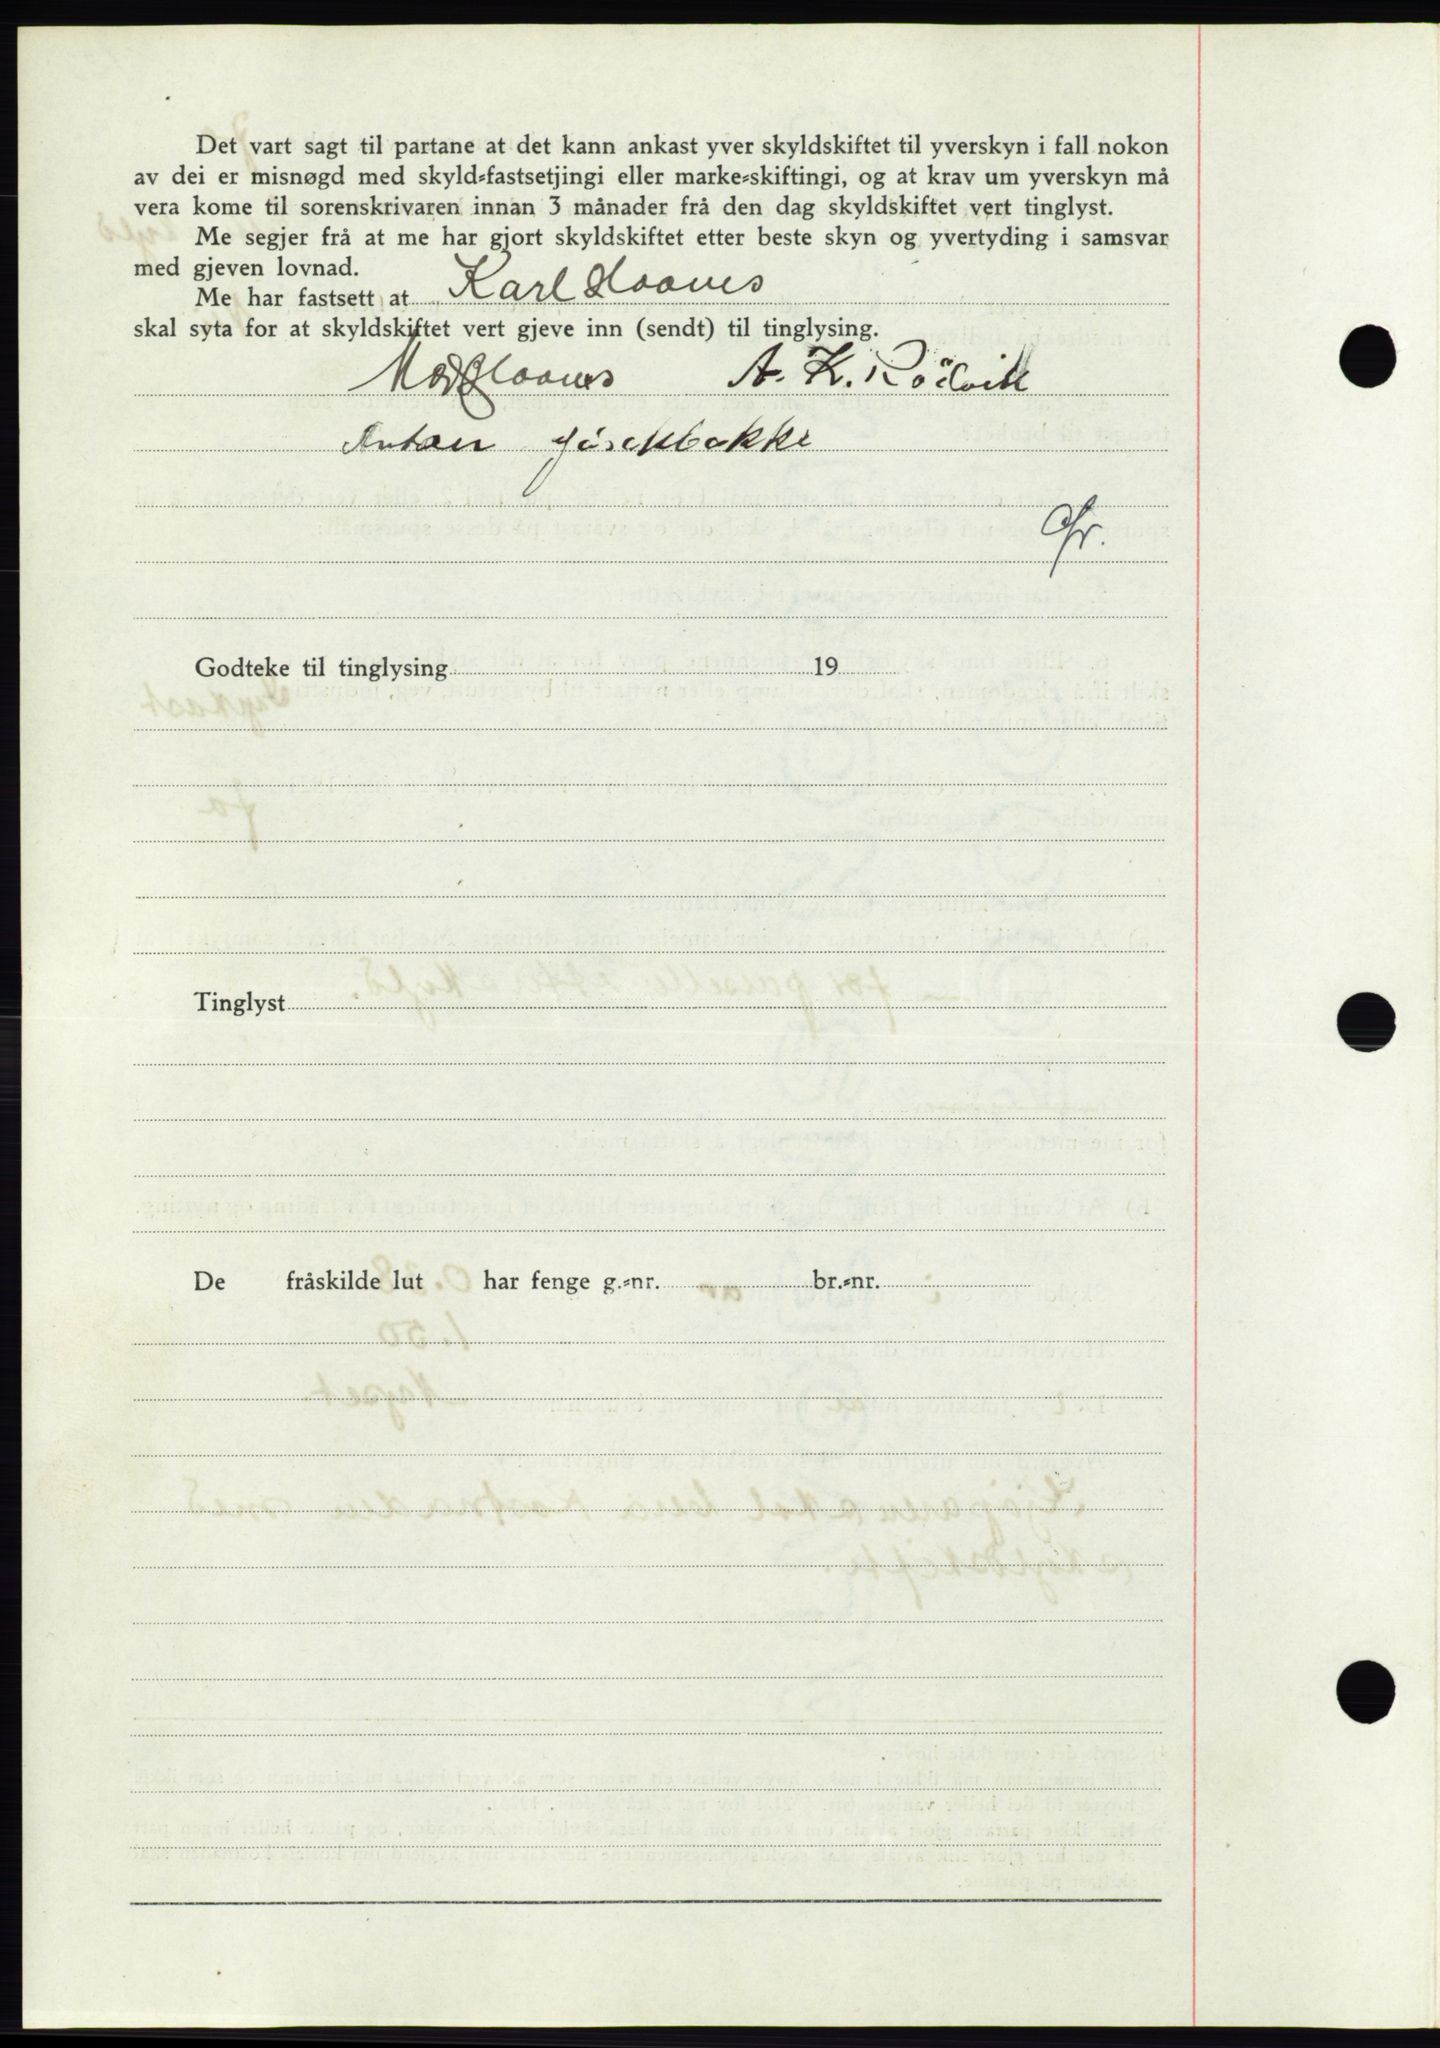 Det vart sagt til partane at det kann ankast yver skyldskiftet til yverskyn i fall nokon
av dei er misnøgd med skyld-fastsetjingi eller marke-skiftingi, og at krav um yverskyn må
vera kome til sorenskrivaren innan 3 månader frå den dag skyldskiftet vert tinglyst.
Me segjer frå at me har gjort skyldskiftet etter beste skyn og yvertyding i samsvar
med gjeven lovnad.
Me har fastsett at Karl Haanes
skal syta for at skyldskiftet vert gjeve inn (sendt) til tinglysing.
Haanes A. K. Rödvik
Anton
Godteke til tinglysing 19
Tinglyst
De fråskilde lut har fenge g.-nr. br.-nr.